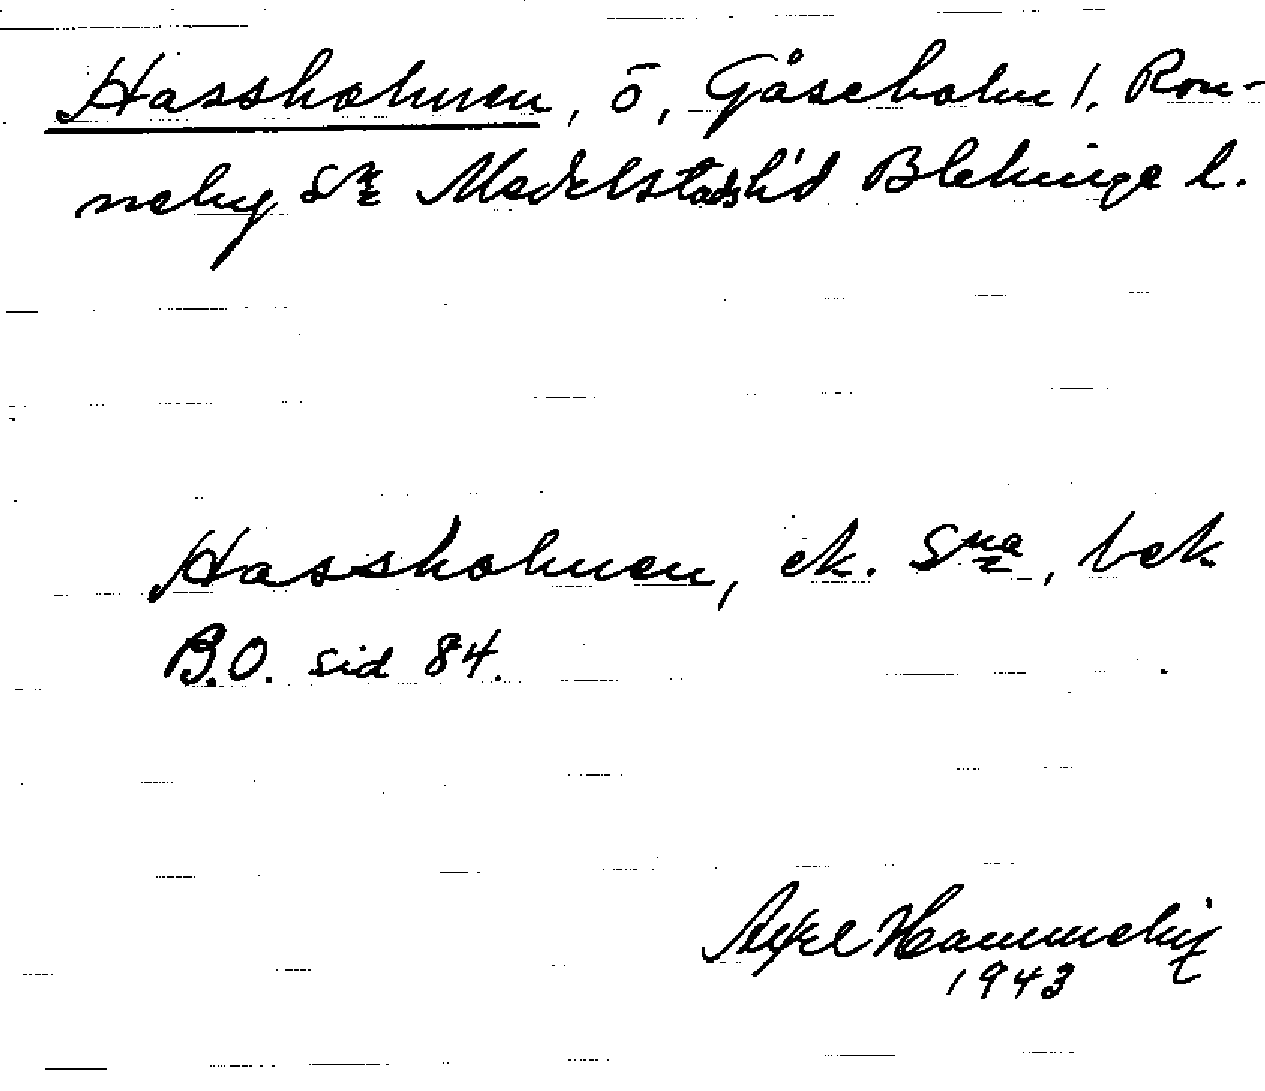 Hassholmen, ö, Gåseholm 1, Ron-
neby Sn Medelstads h'd Blekinge l.
Hassholmen, ek. Sna, bek
B.O. sid 84.
Axel
1943